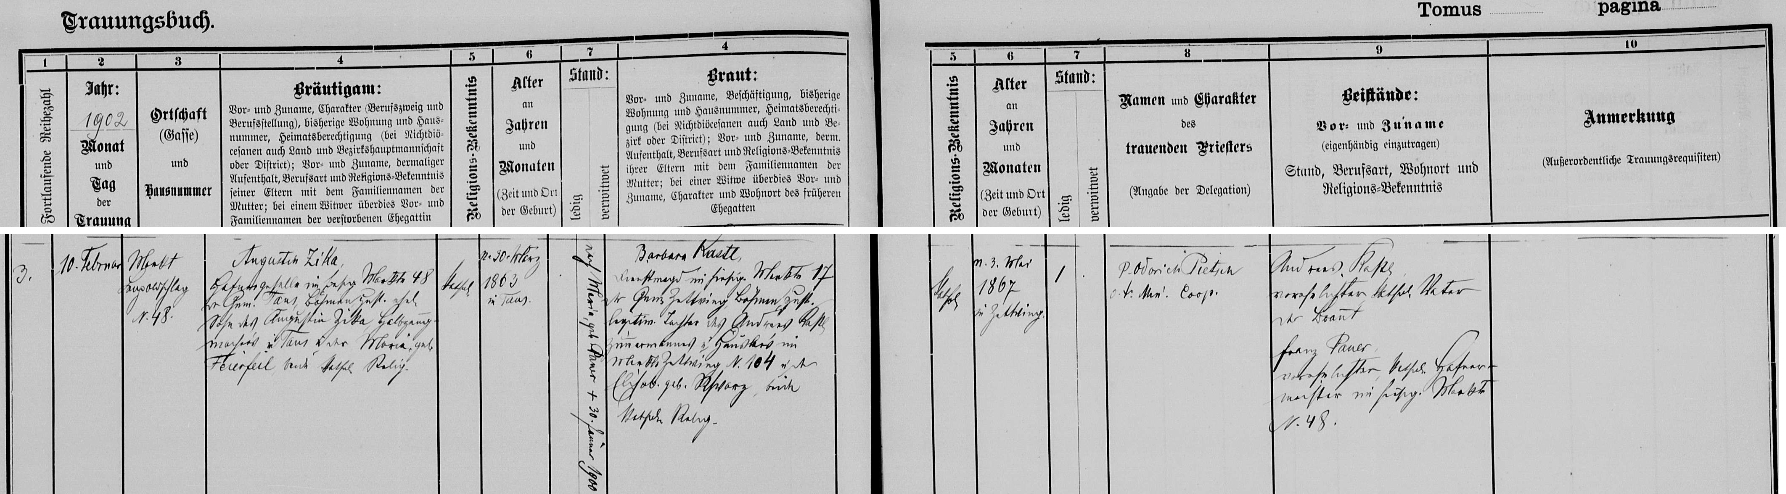 Trauungsbuch.
Tomus
pagina
1
2
3
4
5
6
7
4
5
6
7
8
9
10
Fortlaufende Reihezahl
Jahr:
1902
Monat
und
Tag
der
Trauung
Ortschaft
(Gasse)
und
Hausnummer
Bräutigam:
Vor- und Zuname, Charakter (Berufszweig und
Berufsstellung), bisherige Wohnung und Haus-
nummer, Heimatsberechtigung (bei Nichtdiö-
cesanen auch Land und Bezirkshauptmannschaft
oder District); Vor- und Zuname, dermaliger
Aufenthalt, Berufsart und Religions-Bekenntnis
seiner Eltern mit dem Familiennamen der
Mutter; bei einem Witwer überdies Vor- und
Familiennamen der verstorbenen Ehegattin
Religions-Bekenntnis
Alter
an
Jahren
und
Monaten
(Zeit und Ort
der Geburt)
Stand:
ledig
verwitwet
Braut:
Vor- und Zuname, Beschäftigung, bisherige
Wohnung und Hausnummer, Heimatsberechti-
gung (bei Nichtdiöcesanen auch Land und Be-
zirk oder District); Vor- und Zuname, derm.
Aufenthalt, Berufsart und Religions-Bekenntnis
ihrer Eltern mit dem Familiennamen der
Mutter; bei einer Witwe überdies Vor- und
Zuname, Charakter und Wohnort des früheren
Ehegatten
Religions-Bekenntnis
Alter
an
Jahren
und
Monaten
(Zeit und Ort
der Geburt)
Stand:
ledig
verwitwet
Namen und Charakter
des
trauenden Priesters
(Angabe der Delegation)
Beistände:
Vor- und Zuname
(eigenhändig einzutragen)
Stand, Berufsart, Wohnort und
Religions-Bekenntnis
Anmerkung
(Außerordentliche Trauungsrequisiten)
3.
10. Februar
Markt
Leopoldschlag
N. 48.
Augustin Zika,
Hafnergeselle in hies. Markte 48
Taus Böhmen zust. ehel.
Sohn des Augustin Zika
in Taus u der Maria, geb.
Feierfeil beide kathol. Relig.
kathol.
n. 30. März
1863
in Taus.
nach Maria, geb. Pauer + 30. Jänner 1900
Barbara Kastl,
Dienstmagd im hiesig. Markte 17
Gem. Zettwing Böhmen zust.
legitim. Tochter des Andreas Kastl
Zimmermannes u Häuslers im
Markte Zettwing N. 104 u der
Elisab. geb. Schwarz, beide
kathol. Relig.
kathol.
n. 3. Mai
1867
in Zettwing.
1
P. Odorich Pietsch
Coop.
Andreas Kastl,
verehelichter, kathol. Vater
der Braut
Franz Pauer,
verehelichter, kathol. Hafner-
meister im hiesig. Markte
N. 48.